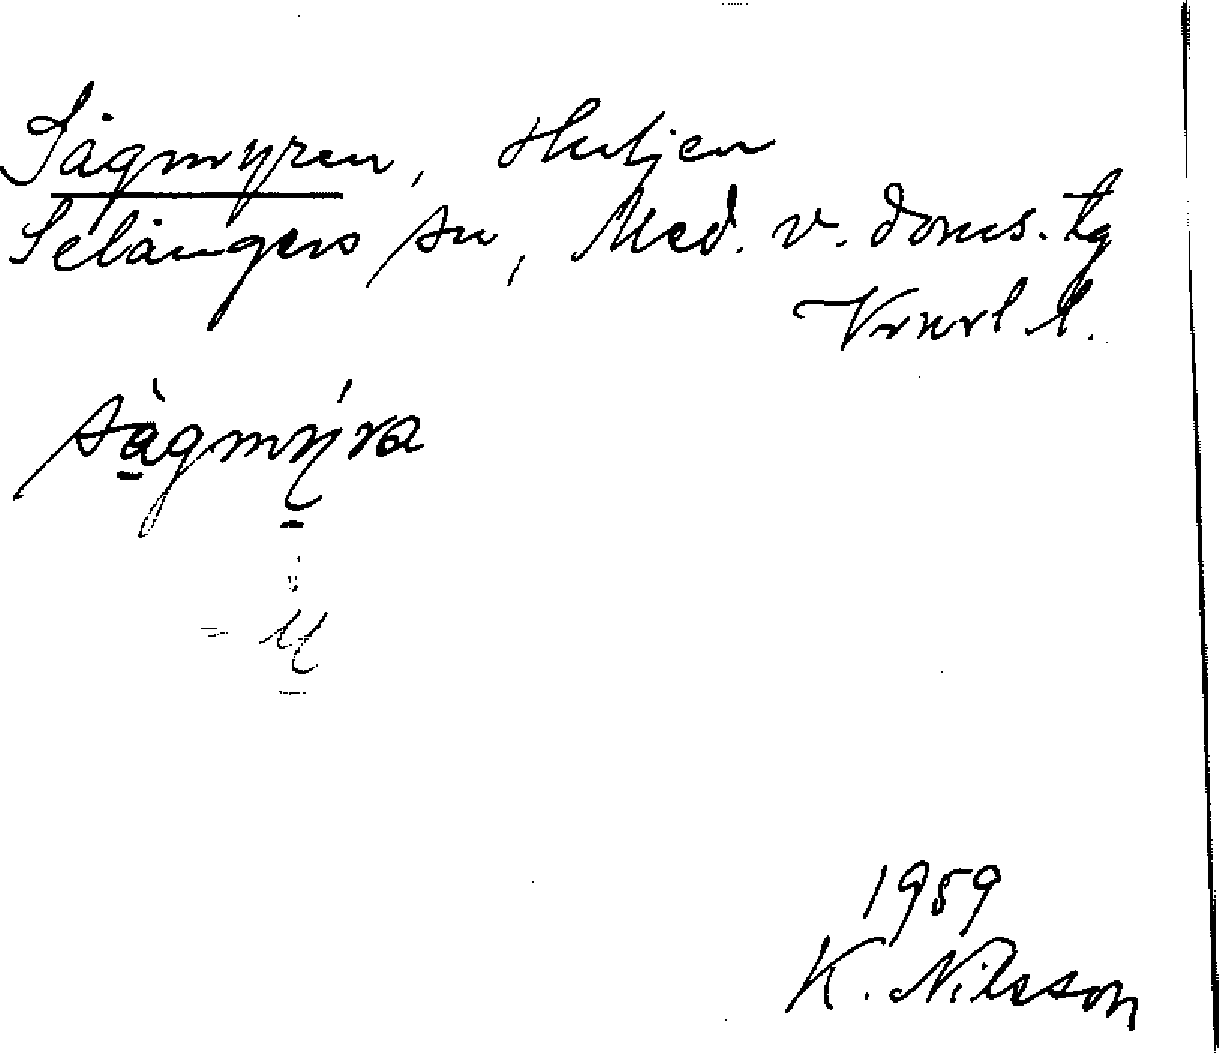 Sågmyren, Huljen
Selångers sn, Med. v. doms. tg
Vrnrl l.
sågmýra
= y
1959
K. Nilsson